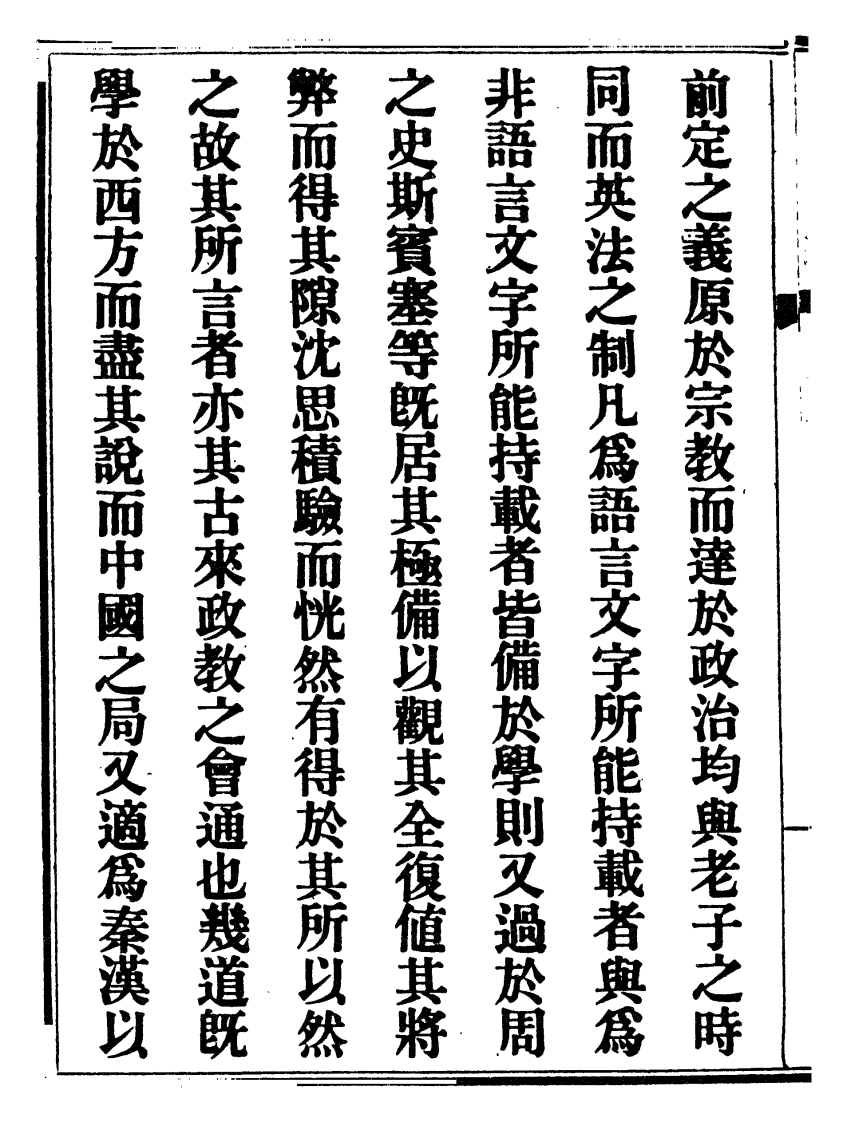 前定之義原於宗教而達於政治均與老子之時
同而英法之制凡爲語言文字所能持載者與爲
非語言文字所能持載者皆備於學則又過於周
之史斯賓塞等旣居其極備以觀其全復値其將
弊而得其隙沈思積驗而恍然有得於其所以然
之故其所言者亦其古來政教之會通也幾道旣
學於西方而盡其說而中國之局又適爲秦漢以